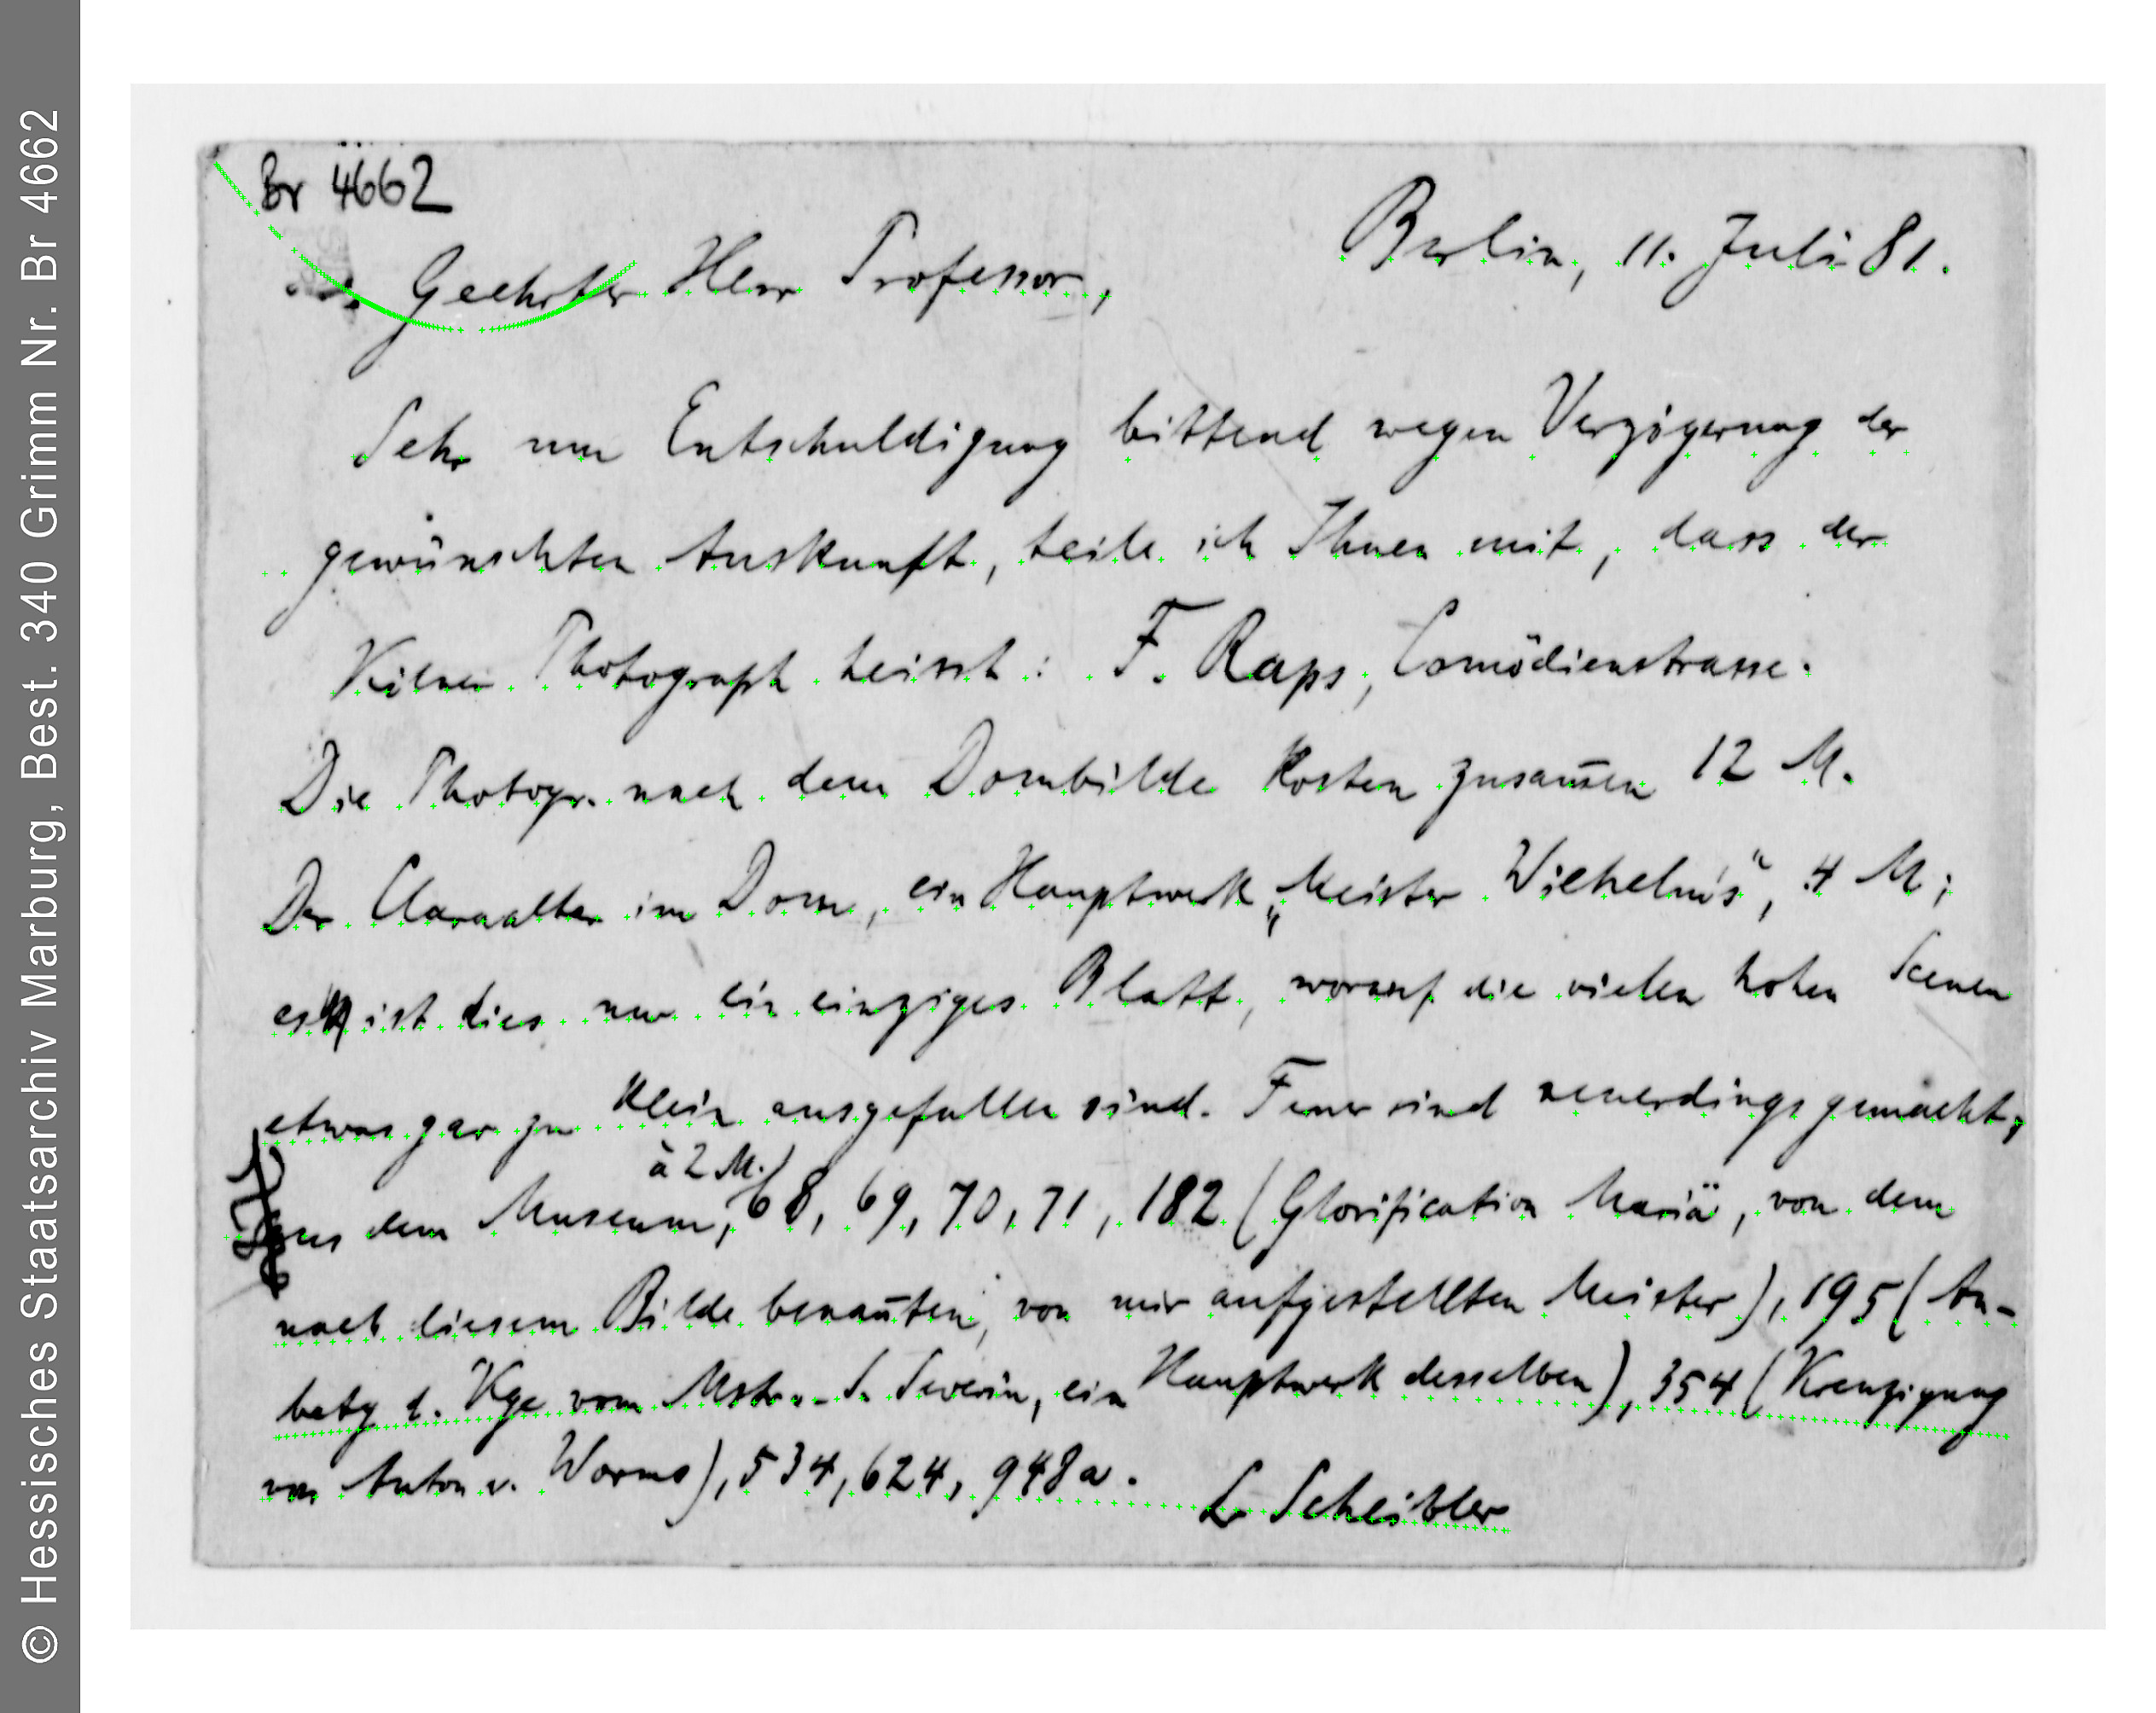 © Hessisches Staatsarchiv Marburg, Best. 340 Grimm Nr. Br 4662
Br 4662
Berlin, 11. Juli 81.
Geehrter Herr Professor,
Sehr um Entschuldigung bittend wegen Verzögerung der
gewünschten Auskunft, teile ich Ihnen mit, dass der
Kölner Photograph heisst: F. Raps, Comödienstrasse.
Die Photogr. nach dem Dombilde kosten zusam̄en 12 M.
Der Claraaltar im Dom, ein Hauptwerk „Meister Wilhelms“, 4 M;
es ist dies nur ein einziges Blatt, worauf die vielen hohen Scenen
etwas gar zu klein ausgefallen sind. Ferner sind neuerdings gemacht,
à 2 M.)
aus dem Museum, 68, 69, 70, 71, 182 (Glorification Mariä, von dem
nach diesem Bilde benan̄ten, von mir aufgestellten Meister), 195 (An-
betg d. Kge vom Mstr. v. S. Severin, ein Hauptwerk desselben), 354 (Kreuzigung
von Anton v. Worms), 534, 624, 948a.
L. Scheibler